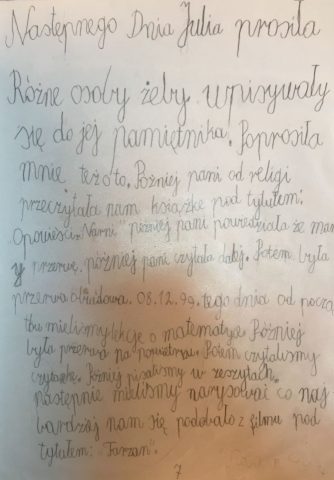 Następnego Dnia Julia prosiła
Różne osoby żeby wpisywały
się do jej pamiętnika. Poprosiła
mnie też oto. Poźniej pani od religi
przeczytała nam książkę pod tytułem:
Opowieści Narni pózniej pani powiedziała że mamy
przerwę. póżniej pani czytała dalej. Potem była
przerwa obiadowa. 08.12.99. tego dnia od począ
tku mieliśmy lekcje o matematyce. Póżniej
była przerwa na powietrzu. Potem czytaliśmy
czytankę. Póżniej pisaliśmy w zeszytach.
następnie mieliśmy narysować co naj
bardziej nam się podobało z filmu pod
tytułem: "Tarzan".
7